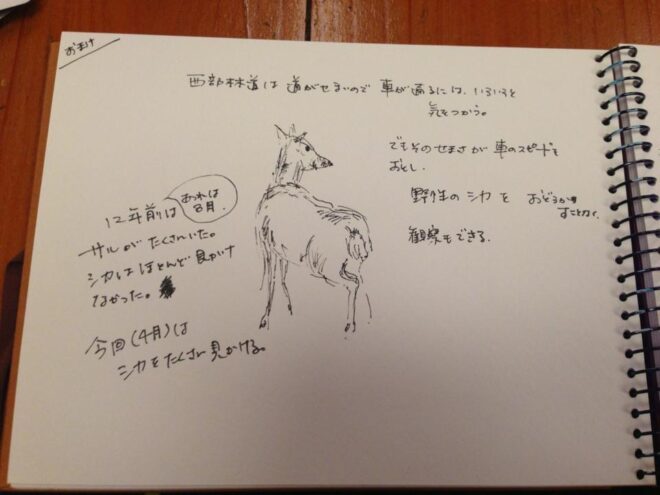 おまけ
西部林道は 道がせまいので 車が通るには、いろいろと
気をつかう。
でもそのせまさが 車のスピードを
おとし、
野性のシカを おどろかす
ことなく、
観察もできる。
12年前は
あれは
8月.
サルがたくさんいた。
シカは ほとんど 見かけ
なかった。
今回(4月)は
シカをたくさん 見かける。